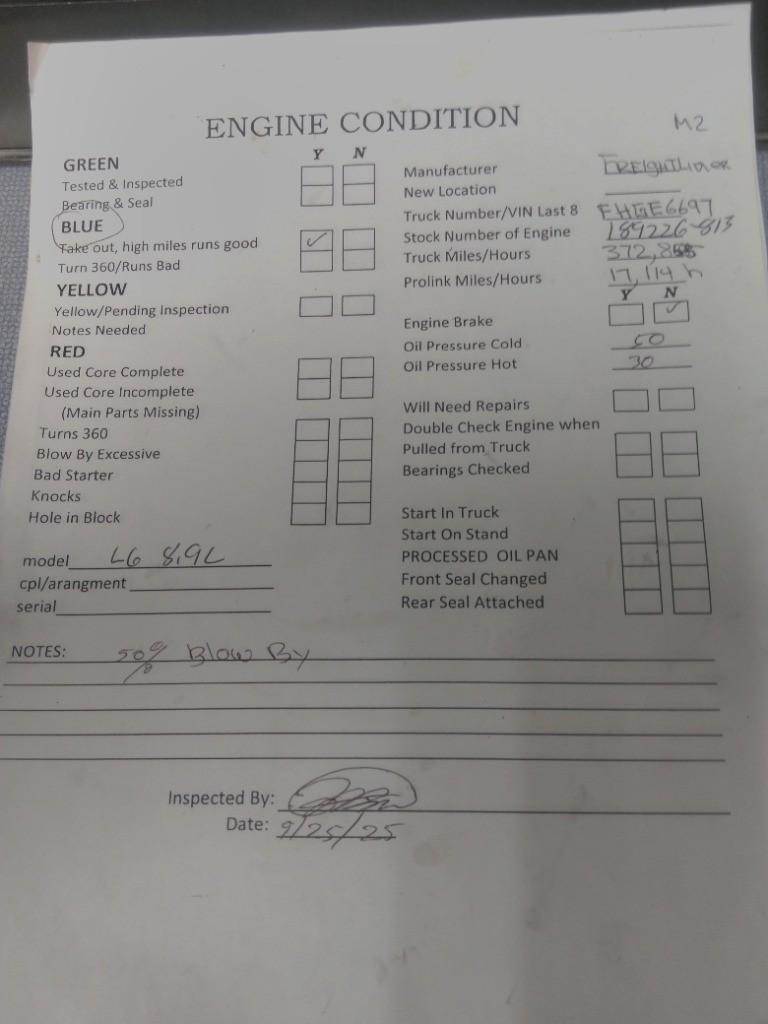 ENGINE CONDITION
M2
Y N
GREEN
Tested & Inspected
Bearing & Seal
BLUE
Take out, high miles runs good ✓
Turn 360/Runs Bad
YELLOW
Yellow/Pending Inspection
Notes Needed
RED
Used Core Complete
Used Core Incomplete
(Main Parts Missing)
Turns 360
Blow By Excessive
Bad Starter
Knocks
Hole in Block
model L6 8.9L
cpl/arangment
serial
Manufacturer FREIGHTLiner
New Location
Truck Number/VIN Last 8 FHGE6697
Stock Number of Engine 189226-813
Truck Miles/Hours
Prolink Miles/Hours 17,114 h
Y N
Engine Brake ✓
Oil Pressure Cold
Oil Pressure Hot 30
Will Need Repairs
Double Check Engine when
Pulled from Truck
Bearings Checked
Start In Truck
Start On Stand
PROCESSED OIL PAN
Front Seal Changed
Rear Seal Attached
NOTES: 50% Blow By
Inspected By:
Date: 9/25/25